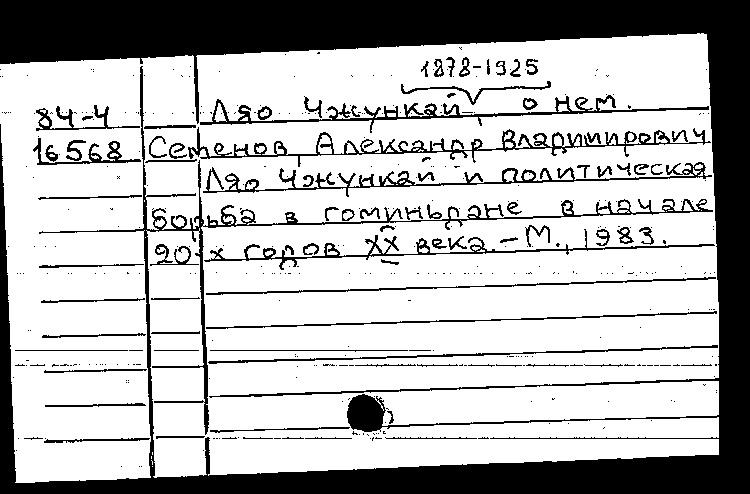 1878-1925
84-4 Ляо Чжункай, о нем.
16568 Семенов, Александр Владимирович
Ляо Чжункай и политическая
борьба в гоминьдане в начале
20-х годов XX века. - М., 1983.